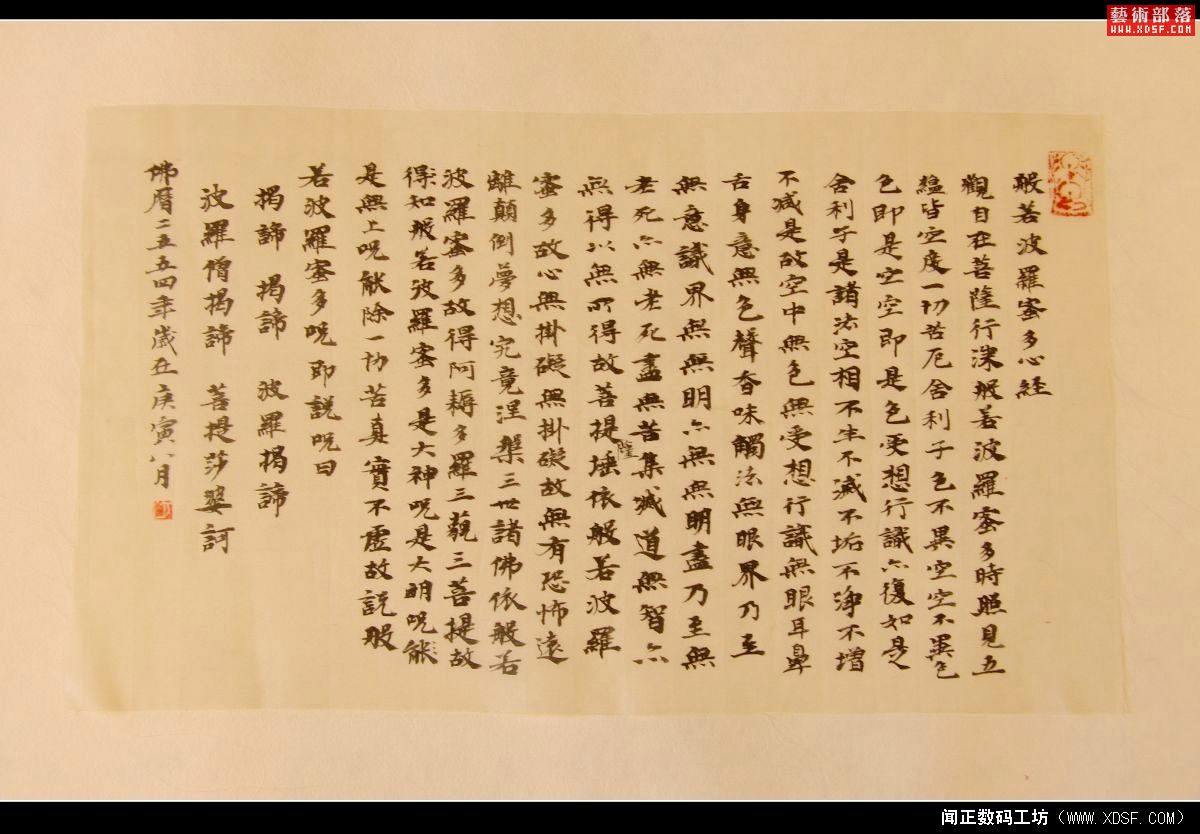 藝術部落
WWW.XDSF.COM
般若波羅蜜多心經
觀自在菩薩行深般若波羅蜜多時照見五
蘊皆空度一切苦厄舍利子色不異空空不異色
色即是空空即是色受想行識亦復如是
舍利子是諸法空相不生不滅不垢不淨不增
不減是故空中無色無受想行識無眼耳鼻
舌身意無色聲香味觸法無眼界乃至
無意識界無無明亦無無明盡乃至無
老死亦無老死盡無苦集滅道無智亦
無得以無所得故菩提薩埵依般若波羅
蜜多故心無掛礙無掛礙故無有恐怖遠
離顛倒夢想究竟涅槃三世諸佛依般若
波羅蜜多故得阿耨多羅三藐三菩提故
得知般若波羅蜜多是大神呪是大明呪能
是無上呪能除一切苦真實不虛故說般
若波羅蜜多呪即說呪曰
揭諦 揭諦 波羅揭諦
波羅僧揭諦 菩提莎婆訶
佛曆二五五四年歲在庚寅八月
闻正数码工坊（WWW.XDSF.COM）